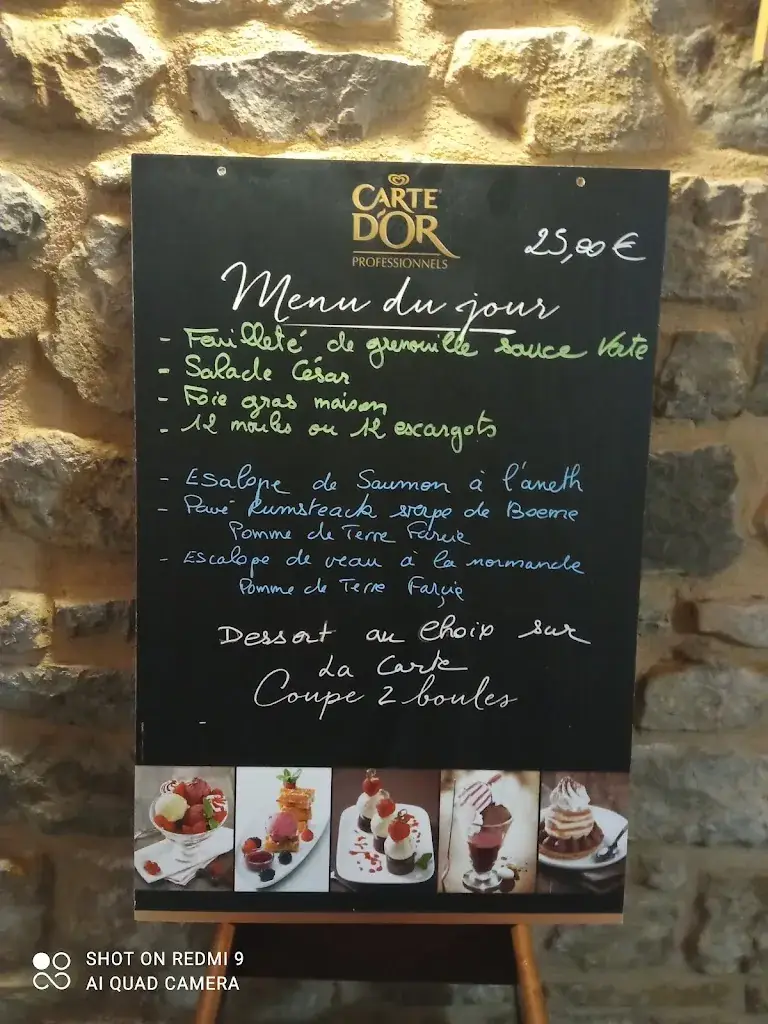 CARTE
D'OR
PROFESSIONNELS
25,00 €
Menu du jour
- Feuilleté de grenouille sauce Verte
- Salade César
- Foie gras maison
- 12 moules ou 12 escargots
- Esalope de Saumon à l'aneth
- Pavé Rumsteack de Boeme
Pomme de Terre Farcie
- Escalope de veau à la normande
Pomme de Terre Farçie
Dessert au choix sur
La Carte
Coupe 2 boules
SHOT ON REDMI 9
AI QUAD CAMERA